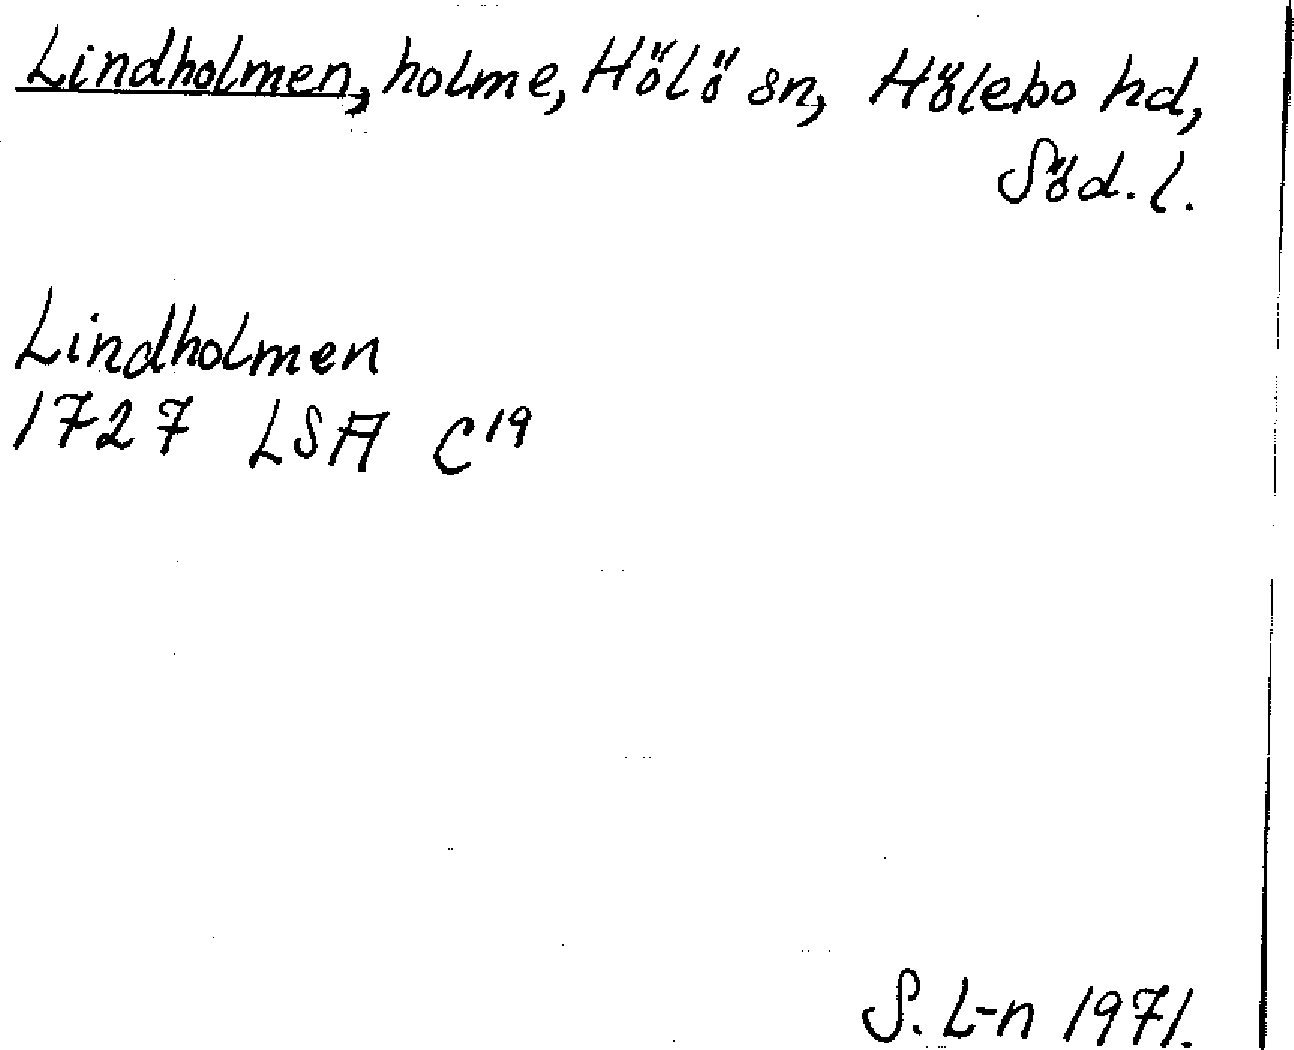 Lindholmen, holme, Hölö sn, Hölebo hd,
Söd. l.
Lindholmen
1727 LSA C19
S. L-n 1971.